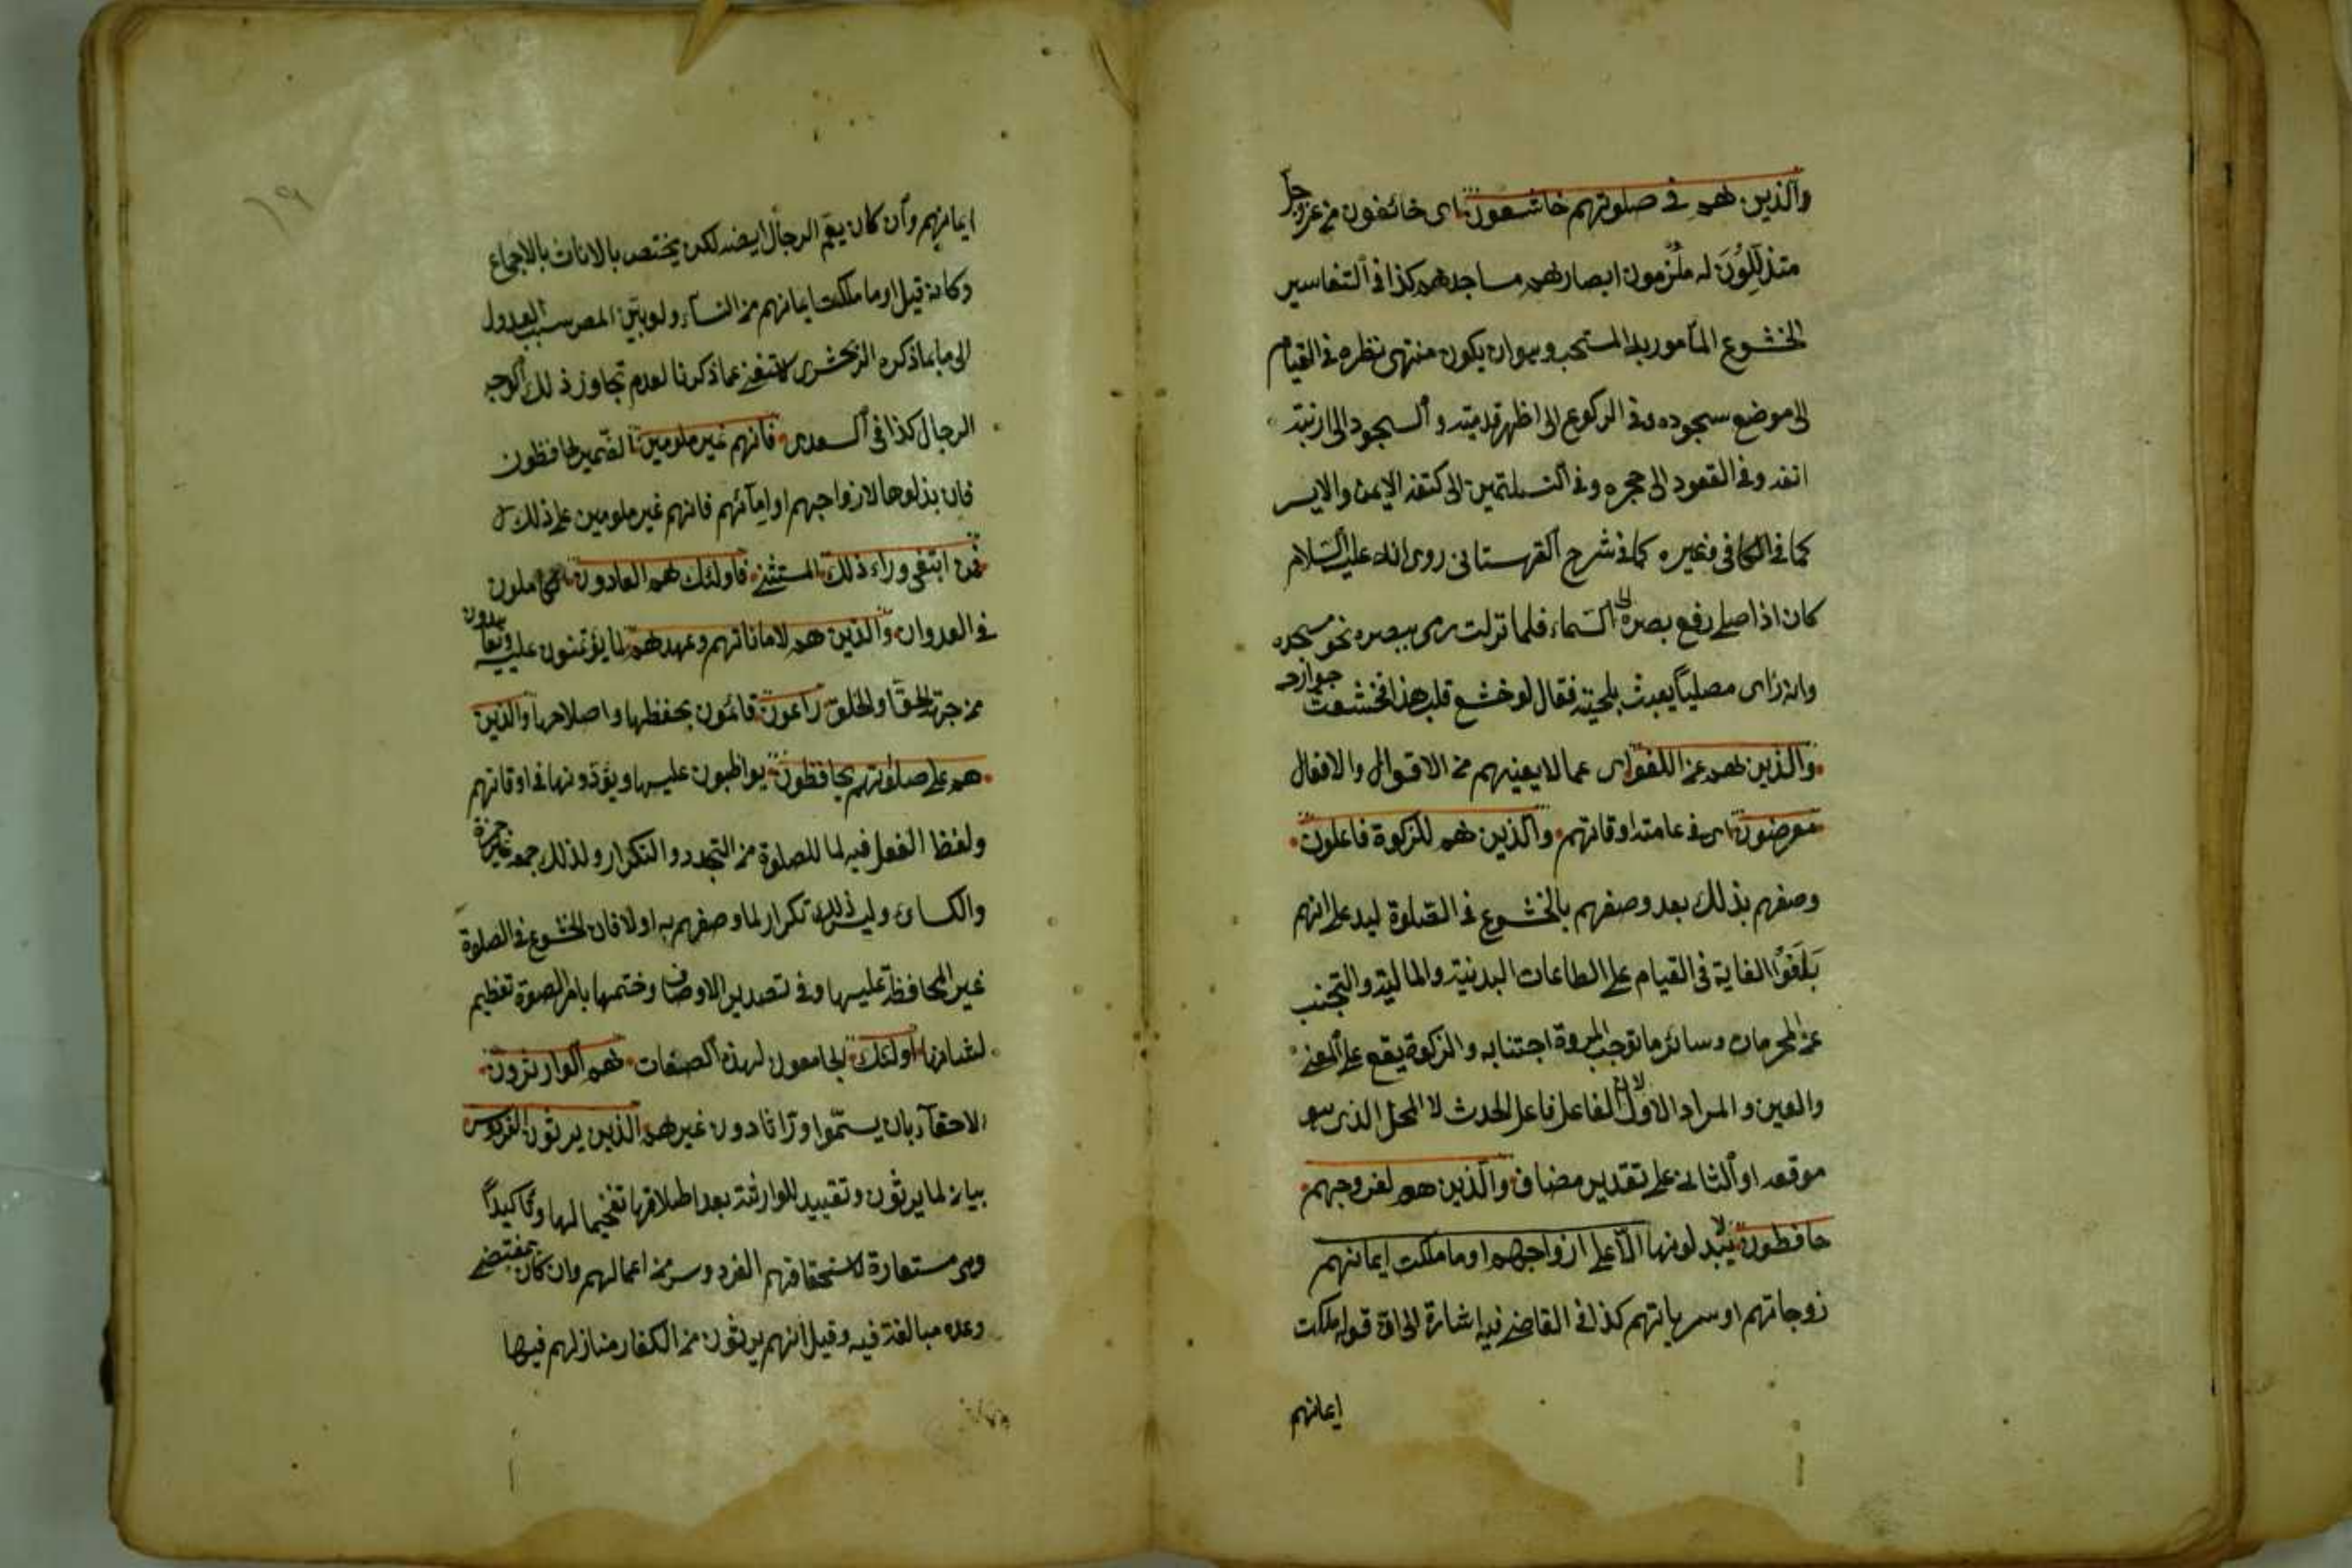 والذين هم في صلوتهم خاشعون اى خائفون من عز وجل
متذللون له ملزمون ابصارهم مساجدهم كذا في التفاسير
الخشوع المأمور به المستحب وهو ان يكون منتهى نظره في القيام
الى موضع سجوده وفي الركوع الى اظهر قدميه والسجود الى ارنبة
انفه وفي القعود الى حجره وفي التسليمتين الى كتفه الايمن والايسر
كما في الكافي وغيره كما في شرح القهستانى روى انه عليه السلام
كان اذا صلى رفع بصره الى السماء فلما نزلت رمى ببصره نحو مسجده
وانه رأى مصليا يعبث بلحيته فقال لو خشع قلب هذا لخشعت جوارحه
والذين هم عن اللغو اى عما لا يعنيهم من الاقوال والافعال
معرضون اى في عامة اوقاتهم والذين هم للزكوة فاعلون
وصفهم بذلك بعد وصفهم بالخشوع في الصلوة ليدل على انهم
بلغوا الغاية في القيام على الطاعات البدنية والمالية والتجنب
عن المحرمات وسائر ما توجب المروة اجتنابه والزكوة يقع على المعنى
والعين والمراد الاول لان الفاعل فاعل الحدث لا المحل الذى هو
موقعه او الثانى على تقدير مضاف والذين هم لفروجهم
حافظون لا يبذلونها الا على ازواجهم او ما ملكت ايمانهم
زوجاتهم او سرياتهم كذا في القاضى فيه اشارة الى ان قوله ملكت
ايمانهم
ايمانهم وان كان يعم الرجال ايضا لكن يختص بالاناث بالاجماع
وكانه قيل او ما ملكت ايمانهم من النساء ولو بين المص سبب العدول
الى ما بما ذكره الزمخشرى لاستغنى عما ذكرنا لعدم تجاوز ذلك الوجه
الرجال كذا في السعدى فانهم غير ملومين الضمير لحافظون
فان بذلوها لازواجهم او امائهم فانهم غير ملومين على ذلك
فمن ابتغى وراء ذلك المستثنى فاولئك هم العادون الكاملون
في العدوان والذين هم لاماناتهم وعهدهم لما يؤتمنون عليه ويعاهدون
من جهة الحق او الخلق راعون قائمون بحفظها واصلاحها والذين
هم على صلوتهم يحافظون يواظبون عليها ويؤدونها في اوقاتهم
ولفظ الفعل فيه لما للصلوة من التجدد والتكرار ولذلك جمعه غير حمزة
والكسائى وليس ذلك تكرار لما وصفهم به اولا فان الخشوع في الصلوة
غير المحافظة عليها وفي تصدير الاوصاف وختمها بامر الصلوة تعظيم
لشانها اولئك الجامعون لهذه الصفات هم الوارثون
الاحقاء بان يسموا وراثا دون غيرهم الذين يرثون الفردوس
بيان لما يرثون وتقييد للوارثة بعد اطلاقها تفخيما لها وتأكيدا
وهى مستعارة لاستحقاقهم الفردوس من اعمالهم وان كان بمقتضى
وعده مبالغة فيه وقيل انهم يرثون من الكفار منازلهم فيها